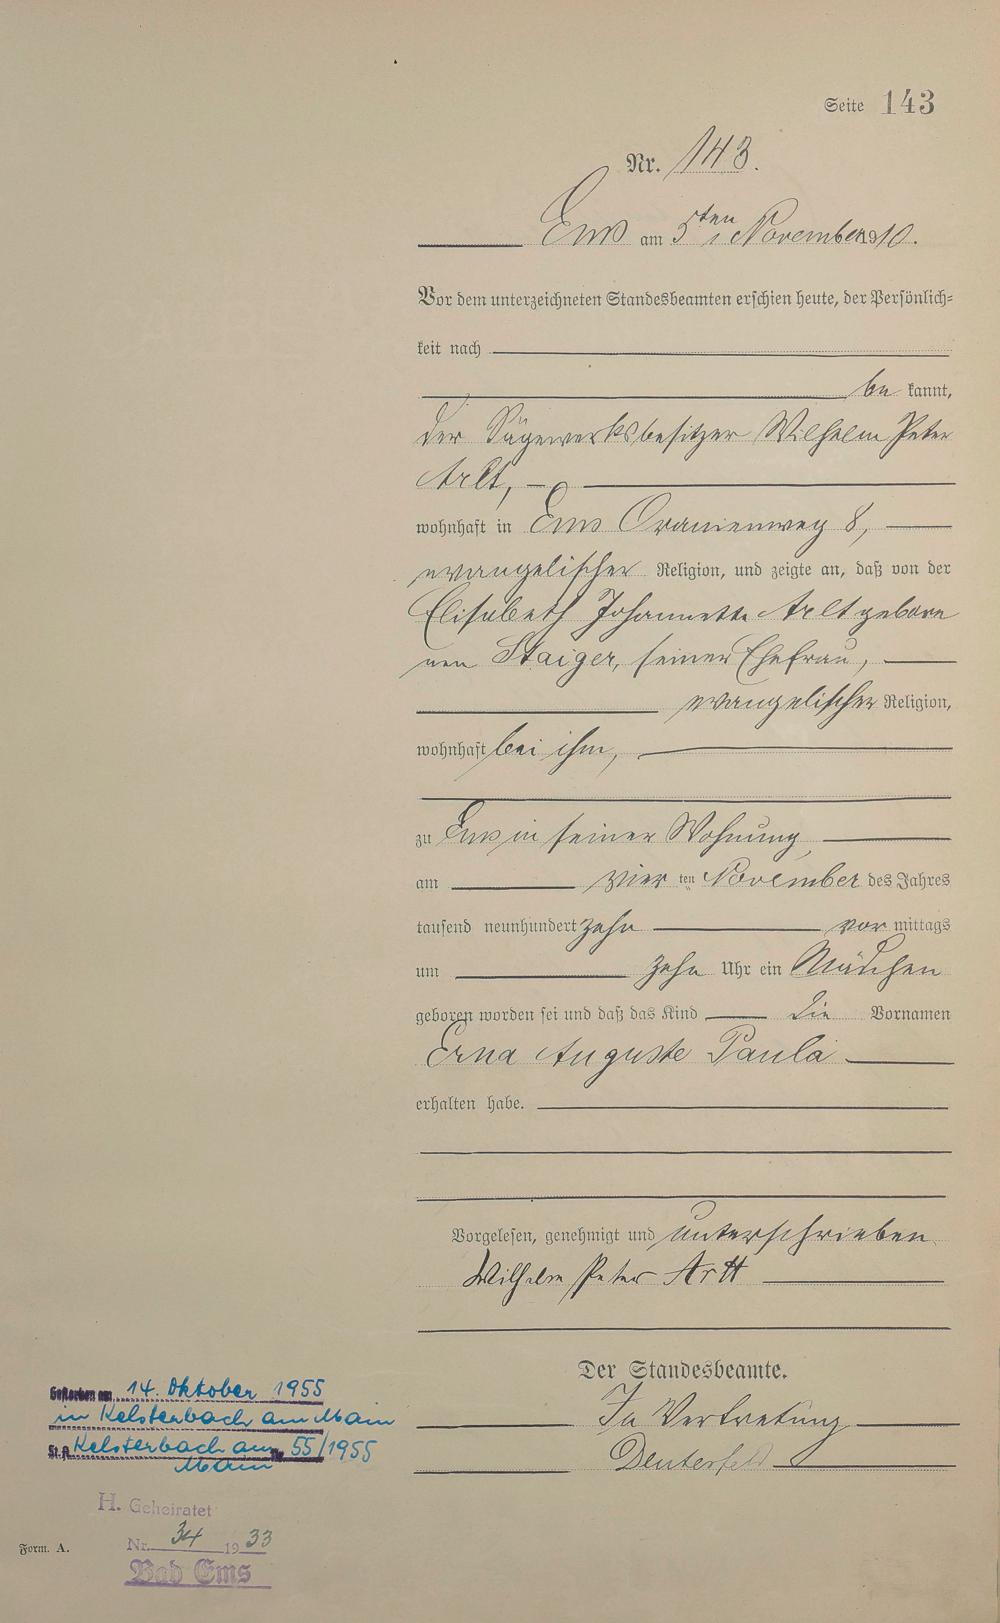 Seite 143
Nr. 143.
Ems am 5ten November 1910.
Vor dem unterzeichneten Standesbeamten erschien heute, der Persönlich-
keit nach
be kannt,
der Sägewerksbesitzer Wilhelm Peter
Arlt,
wohnhaft in Ems Oranienweg 8,
evangelischer Religion, und zeigte an, daß von der
Elisabeth Johannette Arlt gebore
nen Staiger, seiner Ehefrau,
evangelischer Religion,
wohnhaft bei ihm,
zu Ems in seiner Wohnung,
am vier ten November des Jahres
tausend neunhundert zehn vor mittags
um zehn Uhr ein Mädchen
geboren worden sei und daß das Kind die Vornamen
Erna Auguste Paula
erhalten habe.
Vorgelesen, genehmigt und unterschrieben
Wilhelm Peter Arlt
Der Standesbeamte.
In Vertretung
Deuterfeld
Gestorben am 14. Oktober 1955
in Kelsterbach am Main
St.A. Kelsterbach am Nr. 55/1955
Main
H. Geheiratet
Nr. 34 1933
Bad Ems
Form. A.